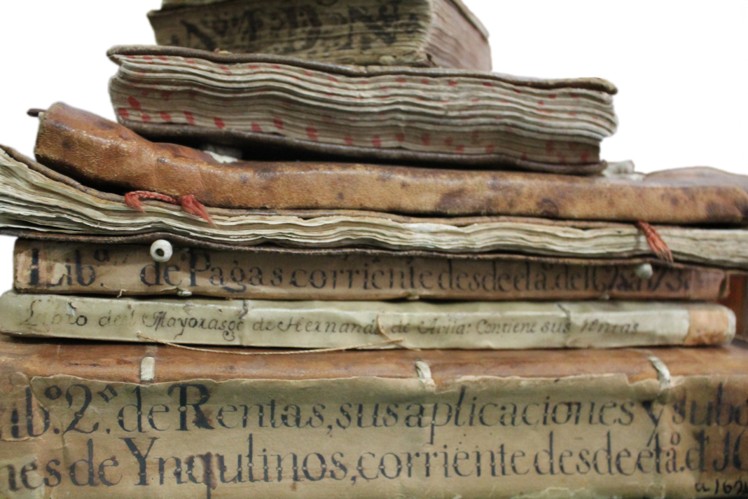 Lib.º de Pagas corriente desde el a.º de 1678 a
Libro del Mayorasgo de Hernando de Avila: Contiene sus rentas
Lib.º 2.º de Rentas, sus aplicaciones y
nes de Ynqulinos, corriente desde el a.º d